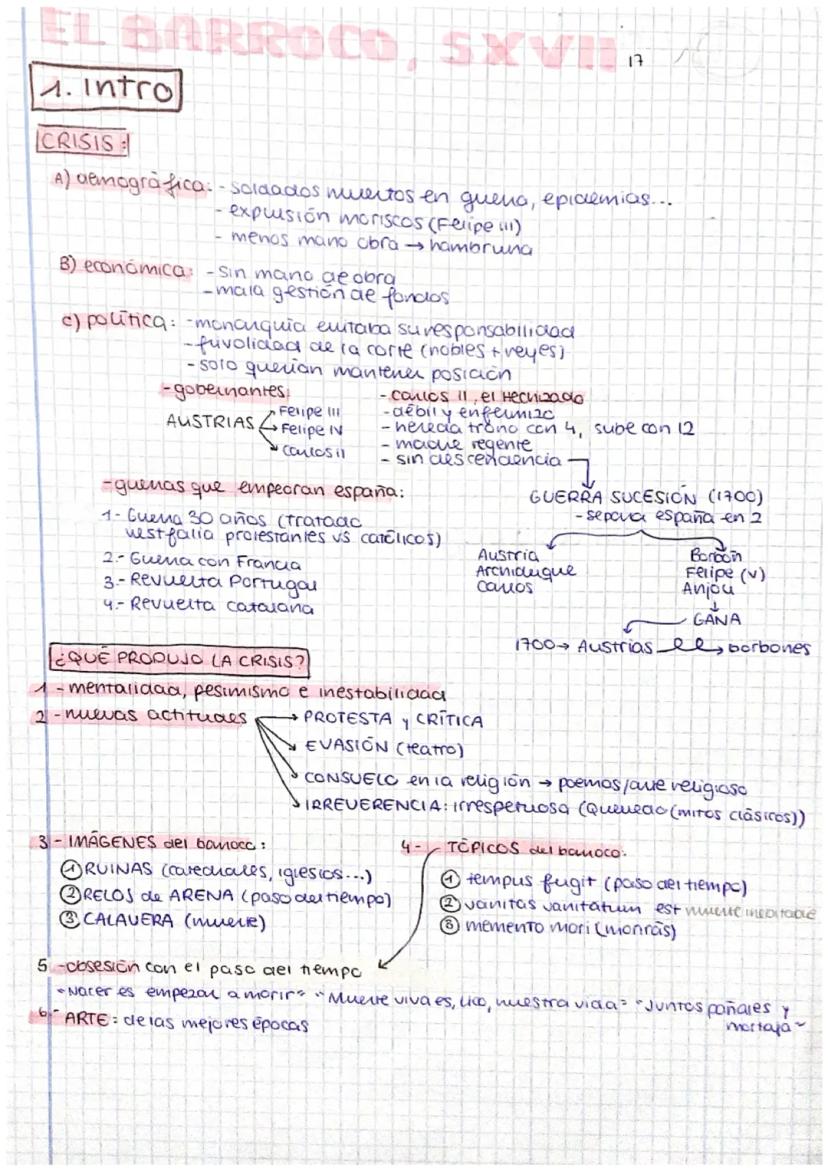 EL BARROCO, SXVII
17
1. Intro
CRISIS:
A) demográfica: - soldados muertos en guerra, epidemias...
- expulsión moriscos (Felipe III)
- menos mano obra → hambruna
B) económica: - sin mano de obra
- mala gestión de fondos
C) política: - monarquía evitaba su responsabilidad
- frivolidad de la corte (nobles + reyes)
- solo querían mantener posición
- gobernantes:
AUSTRIAS
Felipe III
Felipe IV
Carlos II
- Carlos II, el Hechizado
- débil y enfermizo
- hereda trono con 4, sube con 12
- madre regente
- sin descendencia
GUERRA SUCESIÓN (1700)
- separa españa en 2
Austria
Archiduque
Carlos
Borbón
Felipe (V)
Anjou
↓
GANA
1700→ Austrias → borbones
- guerras que empeoran españa:
1- Guerra 30 años (tratado
westfalia protestantes vs católicos)
2.- Guerra con Francia
3.- Revuelta Portugal
4.- Revuelta catalana
¿QUÉ PRODUJO LA CRISIS?
1 - mentalidad, pesimismo e inestabilidad
2 - nuevas actitudes
→ PROTESTA y CRÍTICA
EVASIÓN (teatro)
CONSUELO en la religión → poemas/arte religioso
IRREVERENCIA: irrespetuosa (Quevedo (mitos clásicos))
3 - IMÁGENES del barroco:
① RUINAS (catedrales, iglesias...)
② RELOS de ARENA (paso del tiempo)
③ CALAVERA (muerte)
4 - TÓPICOS del barroco:
① tempus fugit (paso del tiempo)
② vanitas vanitatum est muerte inevitable
③ memento mori (morirás)
5 - obsesión con el paso del tiempo
"Nacer es empezar a morir" "Muerte viva es, Lico, nuestra vida" "Juntos pañales y
mortaja"
6 - ARTE: de las mejores épocas